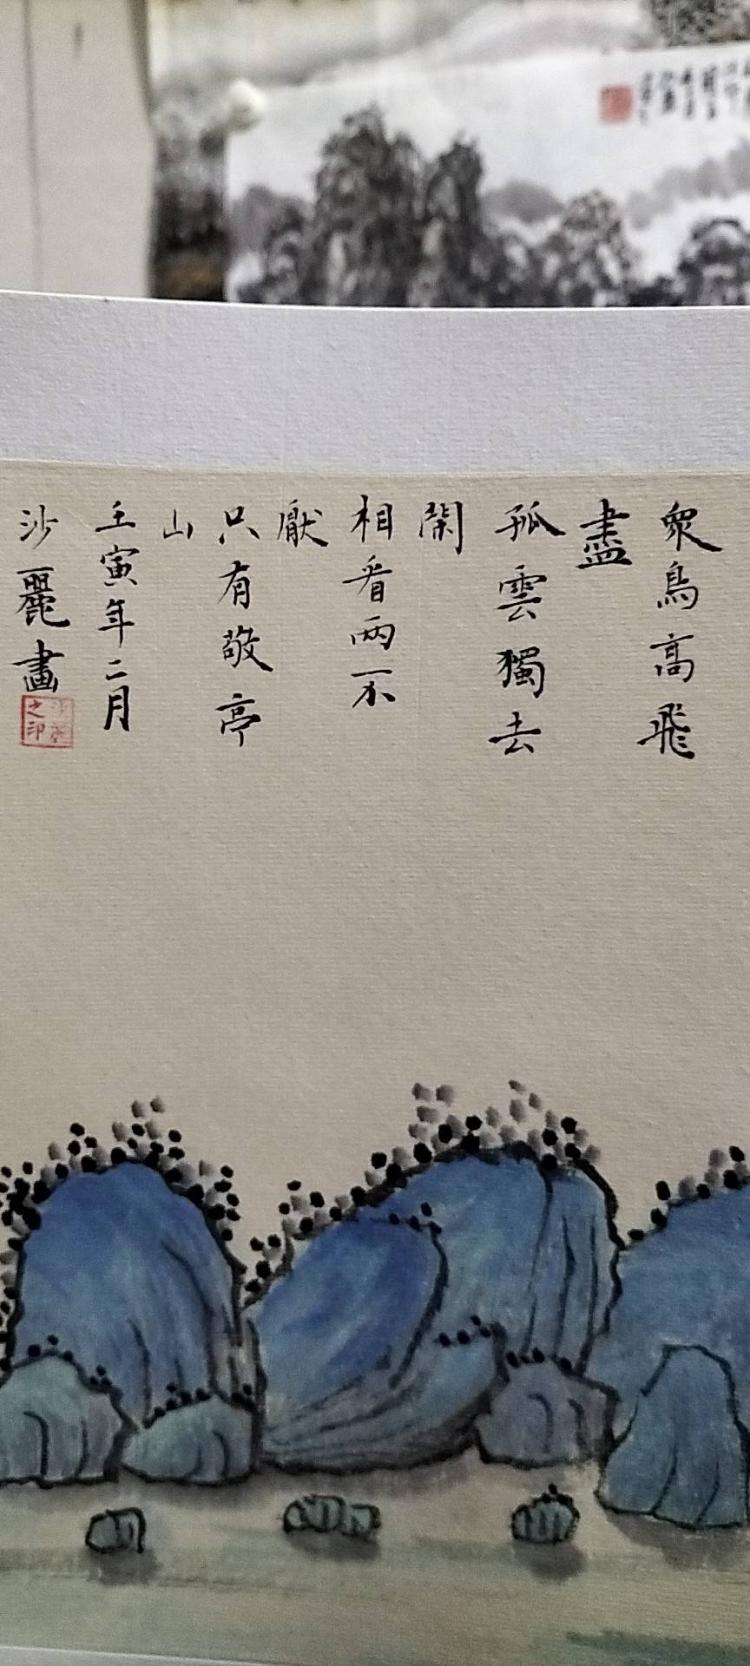 衆鳥高飛
盡
孤雲獨去
閑
相看两不
厭
只有敬亭
山
壬寅年二月
沙麗畫
沙麗之印